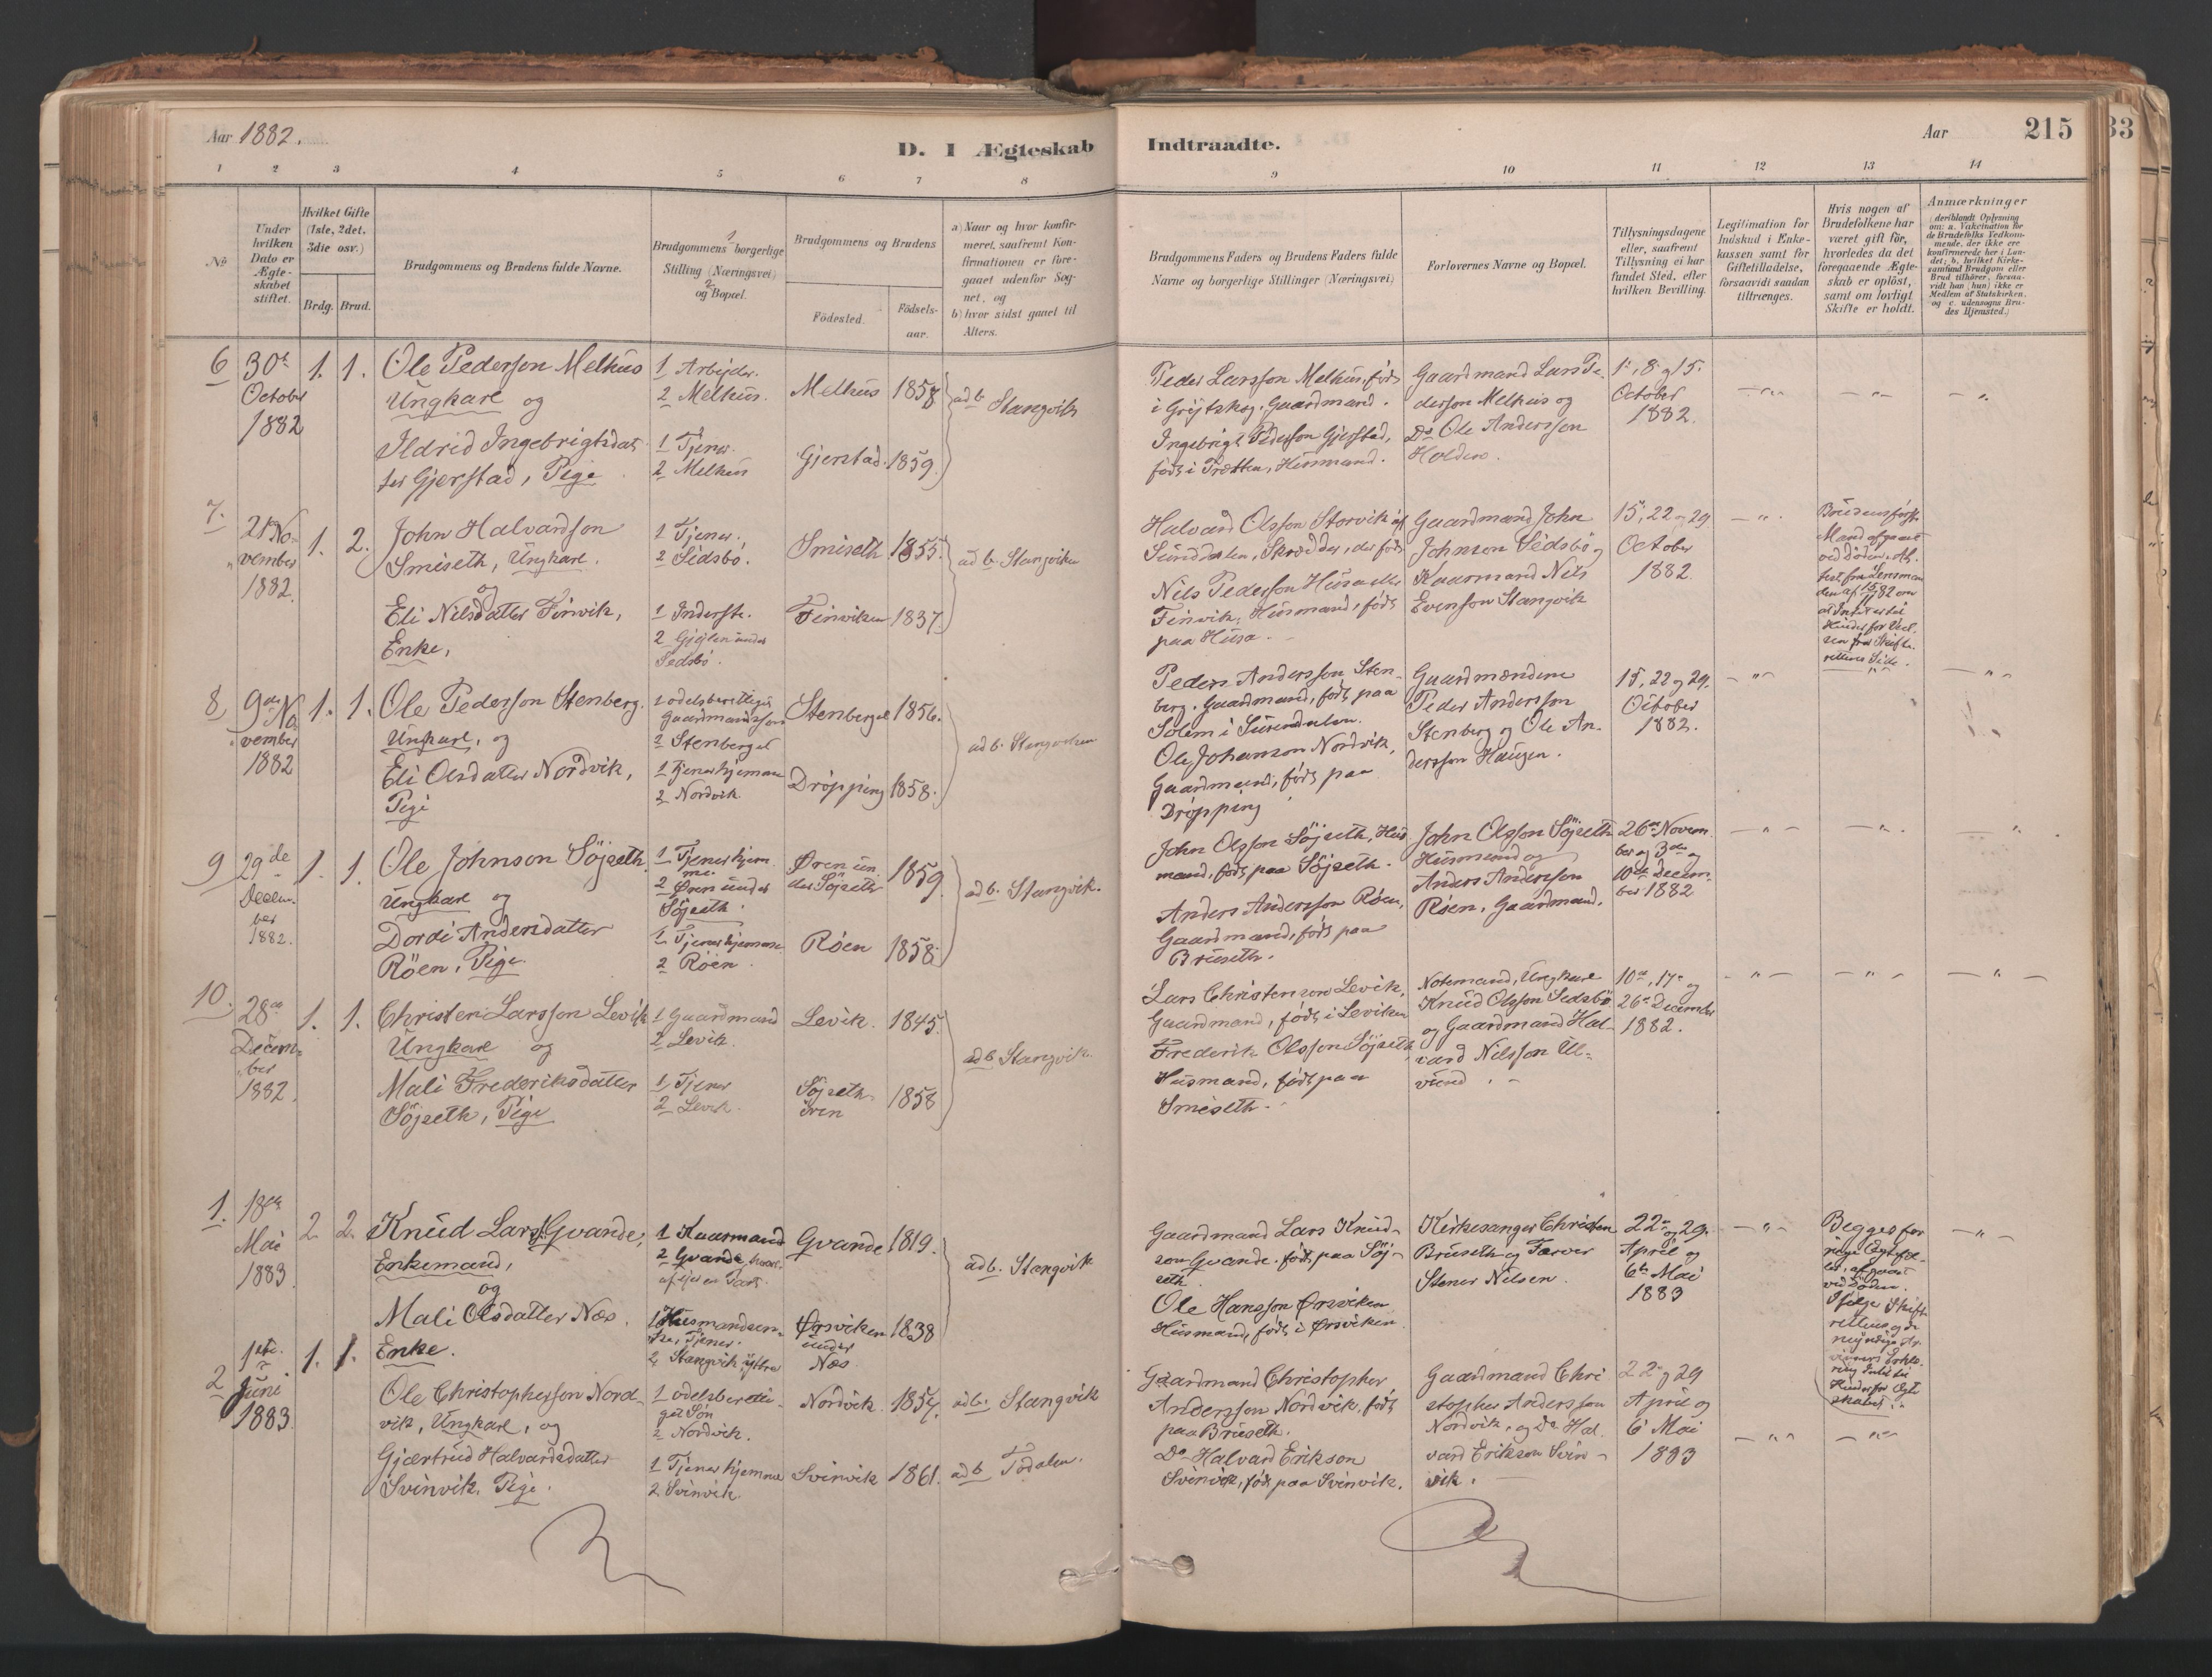 Aar 1882.
D. I Ægteskab
Indtraadte.
Aar
215
33
1 2 3 4 5 6 7 8 9 10 11 12 13 14
No
Under hvilken Dato er Ægteskabet stiftet.
Hvilket Gifte (1ste, 2det, 3die osv.)
Brdg. Brud.
Brudgommens og Brudens fulde Navne.
1 Brudgommens borgerlige Stilling (Næringsvei) 2 og Bopæl.
Brudgommens og Brudens
Fødested.
Fødselsaar.
a) Naar og hvor konfirmeret, saafremt Konfirmationen er foregaaet udenfor Sognet, og
b) hvor sidst gaaet til Alters.
Brudgommens Faders og Brudens Faders fulde Navne og borgerlige Stillinger (Næringsvei)
Forlovernes Navne og Bopæl.
Tillysningsdagene eller, saafremt Tillysning ei har fundet Sted, efter hvilken Bevilling.
Legitimation for Indskud i Enkekassen samt for Giftetilladelse, forsaavidt saadan tiltrænges.
Hvis nogen af Brudefolkene har været gift før, hvorledes da det foregaaende Ægteskab er opløst, samt om lovligt Skifte er holdt.
Anmærkninger
(deriblandt Oplysning om: a. Vakcination for de Brudefolks Vedkommende, der ikke ere konfirmerede her i Landet; b. hvilket Kirkesamfund Brudgom eller Brud tilhører, forsaavidt han (hun) ikke er Medlem af Statskirken, og c. udensogns Brudes Hjemsted.)
6
30te October 1882
1. 1.
Ole Pederson Melhus
Ungkarl og
Ildrid Ingebrigtsdatter Gjerstad, Pige
1 Arbejder.
2 Melhus.
1 Tjener
2 Melhus
Melhus 1858
Gjerstad 1859.
ad b. Stangvik
Peder Larsson Melhus, født
i Grytskog, Gaardmand.
Ingebrigt Pederson Gjerstad,
født i Trætten, Husmand.
Gaardmand Lars Pederson Melhus og
Do Ole Andersson
Holden.
1, 8 og 15.
October
1882.
7.
2den November 1882.
1. 2.
John Halvardson
Smiseth, Ungkarl.
og
Eli Nilsdatter Finvik,
Enke,
1 Tjener,
2 Sedsbö.
1 Inderste.
2 under
Sedsbö.
Smiseth 1855.
Finviken 1837.
ad b. Stangviken
Halvard Olsson Storvik af
Sunddalen, Skrædder, der født
Nils Pederson Husa eller
Finvik, Husmand, født
paa Husa.
Gaardmand John
Johnson Sedsbö og
Kaarmand Nils
Evenson Stangvik
15, 22 og 29
October
1882.
Brudens første
Mand afgaaet
ved Döden. At-
test fra Lensman
den af 15/11 82 om
at Intet er til
Hinder for Viel-
sen fra Skifte-
rettens Side.
8
9de November 1882
1. 1.
Ole Pederson Stenberg.
Ungkarl, og
Eli Olsdatter Nordvik,
Pige
1 odelsberettiget
Gaardmandssøn
2 Stenberget
1 Tjener hjemme
2 Nordvik.
Stenberget 1856.
Dröpping 1858.
ad b. Stangviken
Peder Andersson Stenberg. Gaardmand, født paa
Solem i Surendalen.
Ole Johanson Nordvik,
Gaardmand, født paa
Dröpping
Gaardmændene
Peder Andersson
Stenberg og Ole Andersson Haugen.
15, 22 og 29.
October
1882.
9
29de December 1882.
1. 1.
Ole Johnson Söjseth.
Ungkarl og
Dordi Andersdatter
Röen, Pige.
1 Tjener hjemme.
2 Øren under
Söjseth.
1 Tjener hjemme
2 Röen.
Øren under Söjseth 1859.
Röen 1858.
ad b. Stangvik.
John Olsson Söjseth, Husmand, født paa Söjseth.
Anders Andersson Röen,
Gaardmand, født paa
Bruseth.
John Olsson Söjseth
Husmand og
Anders Andersson
Röen, Gaardmand.
26de November og 3de og
10de December 1882
10.
28de December 1882.
1. 1.
Christen Larsson Levik
Ungkarl og
Mali Frederiksdatter
Söjseth, Pige
1 Gaardmand
2 Levik.
1 Tjener
2 Levik.
Levik. 1845.
Söjseth-
ören 1858
ad b. Stangvik.
Lars Christenson Levik,
Gaardmand, født i Leviken
Frederik Olsson Söjseth
Husmand, født paa
Smiseth.
Notemand, Ungkarl
Knud Olsson Sedsbö
og Gaardmand Halvard Nilsson Ulvund.
10de, 17de og
26de December
1882.
1.
18de Mai 1883.
2. 2.
Knud Larss. Gvande,
Enkemand,
og
Mali Olsdatter Næs.
Enke.
1 Kaarmand
2 Gvande,
1 Husmandsenke, Tjener.
2 Stangvik yttre
Gvande 1819.
Ørsviken
under
Næs. 1838
ad b. Stangvik
Gaardmand Lars Knudson Gvande. født paa Söjseth
Ole Hansson Ørsviken
Husmand, født i Ørsviken.
Kirkesanger Christen
Bruseth og Farver
Stener Nilsen.
22de og 29.
April og
6te Mai
1883
Begges forrige Ægtefæller, afgaaet
ved Döden.
Ifölge Skifterettens og de
myndige Arvingers Erklæring Intet til
Hinder for Ægteskabet.
2
1ste Juni 1883.
1. 1.
Ole Christopherson Nordvik, Ungkarl, og
Gjærtrud Halvardsdatter
Svinvik, Pige.
1 odelsberettiget Søn
2 Nordvik.
1 Tjener hjemme
2 Svinvik.
Nordvik. 1854.
Svinvik 1861.
ad b. Stangvik
ad b. Todalen.
Gaardmand Christopher
Andersson Nordvik, født
paa Bruseth.
Do Halvard Erikson
Svinvik, født paa Svinvik.
Gaardmand Christopher Andersson
Nordvik, og Do Halvard Erikson Svinvik.
22 og 29
April og
6 Mai
1883